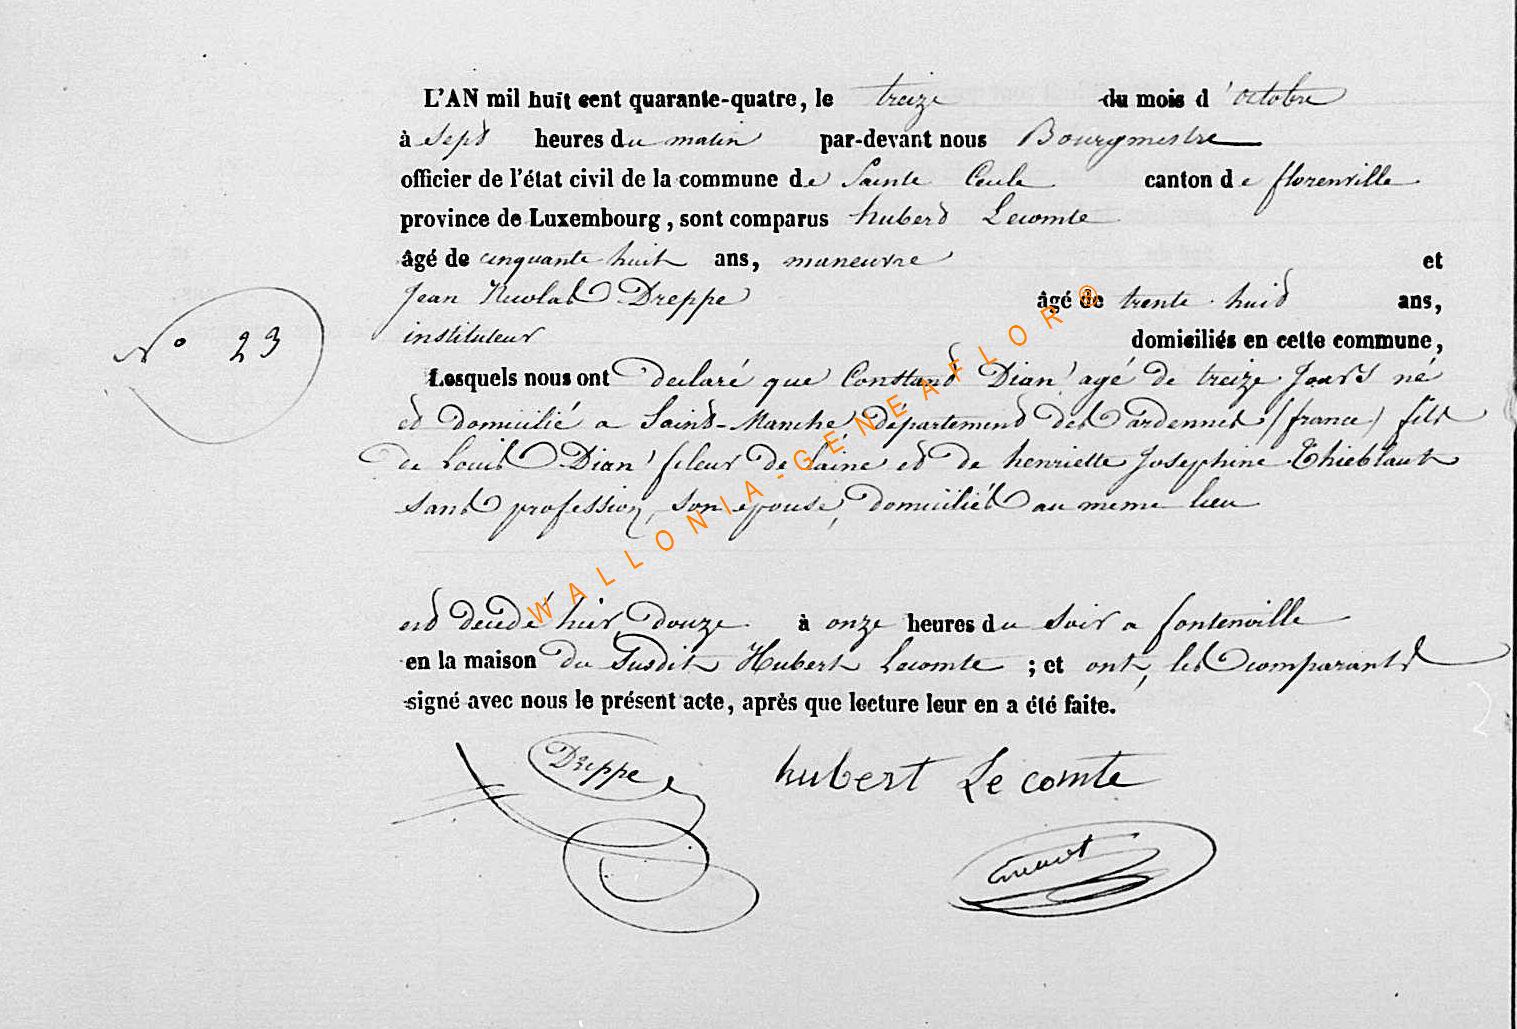 L'AN mil huit cent quarante-quatre, le treize du mois d'octobre
à sept heures du matin par-devant nous Bourgmestre
officier de l'état civil de la commune de Sainte Cecile canton de florenville
province de Luxembourg, sont comparus hubert Lecomte
âgé de cinquante huit ans, maneuvre et
Jean Nicolas Dreppe âgé de trente huit ans,
instituteur domiciliés en cette commune,
N° 23
Lesquels nous ont declaré que Constant Dian agé de treize Jours né
et domicilié a Saint-Manche département des ardennes (france) fils
de Louis Dian fileur de laine et de henriette Josephine Thieblaut
sans profession, son epouse, domiciliés au meme lieu
est decedé hier douze à onze heures du soir a fontenoille
en la maison du susdit Hubert Lecomte ; et ont, les comparants
signé avec nous le présent acte, après que lecture leur en a été faite.
Dreppe hubert Le comte
WALLONIA-GENEAFLOR ®